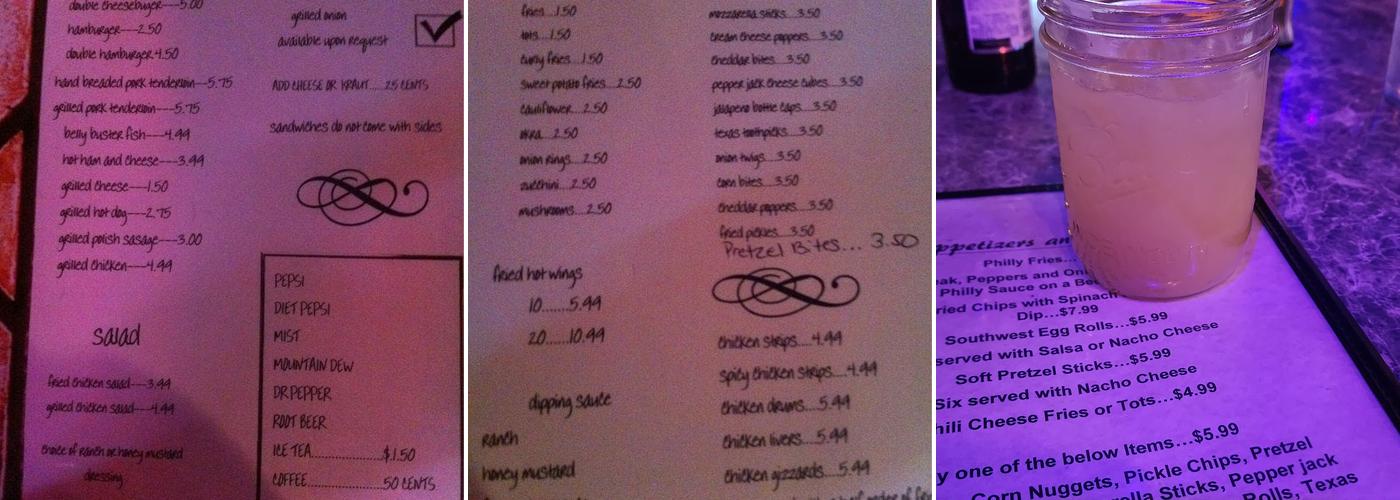 double cheeseburger---5.00
hamburger---2.50
double hamburger 4.50
hand breaded pork tenderloin---5.75
grilled pork tenderloin---5.75
belly buster fish---4.99
hot ham and cheese---3.99
grilled cheese---1.50
grilled hot dog---2.75
grilled polish sasage---3.00
grilled chicken---4.99
salad
fried chicken salad---3.99
grilled chicken salad---4.99
choice of ranch or honey mustard
dressing
grilled onion
available upon request
ADD CHEESE OR KRAUT....25 CENTS
sandwiches do not come with sides
PEPSI
DIET PEPSI
MIST
MOUNTAIN DEW
DR PEPPER
ROOT BEER
ICE TEA........................$1.50
COFFEE........................50 CENTS
fries...1.50
tots...1.50
curly fries...1.50
sweet potato fries...2.50
cauliflower...2.50
okra...2.50
onion rings...2.50
zucchini...2.50
mushrooms...2.50
fried hot wings
10.......5.99
20......10.99
dipping sauce
ranch
honey mustard
mozzarella sticks...3.50
cream cheese poppers...3.50
cheddar bites...3.50
pepper jack cheese cubes...3.50
jalapeno bottle caps...3.50
texas toothpicks...3.50
onion twigs...3.50
corn bites...3.50
cheddar poppers...3.50
fried pickles...3.50
Pretzel Bites... 3.50
chicken strips....4.99
spicy chicken strips....4.99
chicken drums....5.99
chicken livers...5.99
chicken gizzards...5.99
Philly Fries...
Peppers and
Philly Sauce on a
Chips with Spinach
Dip...$7.99
Southwest Egg Rolls...$5.99
served with Salsa or Nacho Cheese
Soft Pretzel Sticks...$5.99
Six served with Nacho Cheese
Cheese Fries or Tots...$4.99
one of the below Items...$5.99
Corn Nuggets, Pickle Chips, Pretzel
Sticks, Pepper jack
Rolls, Texas